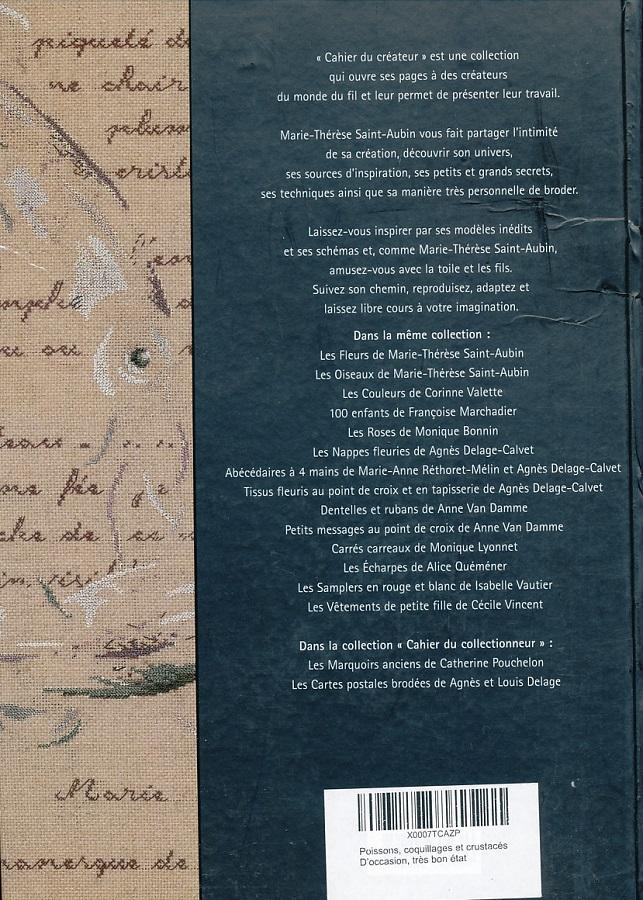 piqueté de
ne chair
plum
crist
« Cahier du créateur » est une collection
qui ouvre ses pages à des créateurs
du monde du fil et leur permet de présenter leur travail.
Marie-Thérèse Saint-Aubin vous fait partager l'intimité
de sa création, découvrir son univers,
ses sources d'inspiration, ses petits et grands secrets,
ses techniques ainsi que sa manière très personnelle de broder.
Laissez-vous inspirer par ses modèles inédits
et ses schémas et, comme Marie-Thérèse Saint-Aubin,
amusez-vous avec la toile et les fils.
Suivez son chemin, reproduisez, adaptez et
laissez libre cours à votre imagination.
Dans la même collection :
Les Fleurs de Marie-Thérèse Saint-Aubin
Les Oiseaux de Marie-Thérèse Saint-Aubin
Les Couleurs de Corinne Valette
100 enfants de Françoise Marchadier
Les Roses de Monique Bonnin
Les Nappes fleuries de Agnès Delage-Calvet
Abécédaires à 4 mains de Marie-Anne Réthoret-Mélin et Agnès Delage-Calvet
Tissus fleuris au point de croix et en tapisserie de Agnès Delage-Calvet
Dentelles et rubans de Anne Van Damme
Petits messages au point de croix de Anne Van Damme
Carrés carreaux de Monique Lyonnet
Les Écharpes de Alice Quéméner
Les Samplers en rouge et blanc de Isabelle Vautier
Les Vêtements de petite fille de Cécile Vincent
Dans la collection « Cahier du collectionneur » :
Les Marquoirs anciens de Catherine Pouchelon
Les Cartes postales brodées de Agnès et Louis Delage
Marie
de
X0007TCAZP
Poissons, coquillages et crustacés
D'occasion, très bon état